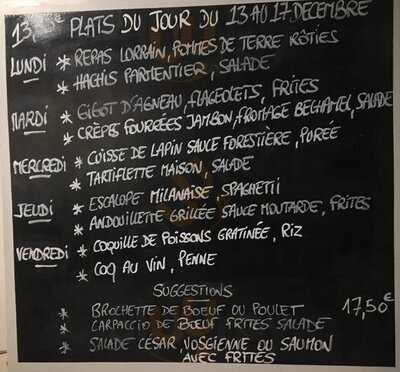 13,5€ PLATS DU JOUR DU 13 AU 17 DECEMBRE
LUNDI * REPAS LORRAIN, POMMES DE TERRE RÔTIES
* HACHIS PARMENTIER, SALADE
MARDI * GIGOT D'AGNEAU, FLAGEOLETS, FRITES
* CRÊPES FOURRÉES JAMBON, FROMAGE BECHAMEL, SALADE
MERCREDI * CUISSE DE LAPIN SAUCE FORESTIÈRE, PURÉE
* TARTIFLETTE MAISON, SALADE
JEUDI * ESCALOPE MILANAISE, SPAGHETTI
* ANDOUILLETTE GRILLÉE SAUCE MOUTARDE, FRITES
VENDREDI * COQUILLE DE POISSONS GRATINÉE, RIZ
* COQ AU VIN, PENNE
SUGGESTIONS
* BROCHETTE DE BOEUF OU POULET 17,50€
* CARPACCIO DE BOEUF FRITES SALADE
* SALADE CÉSAR, VOSGIENNE OU SAUMON
AVEC FRITES